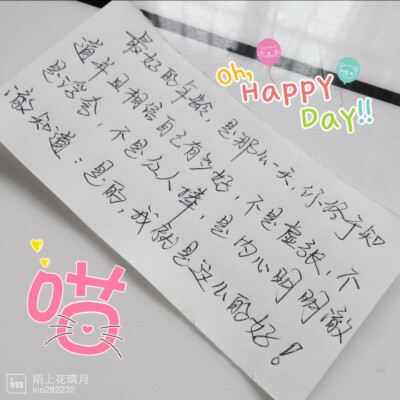 最好的年龄,是那么一天,你终于知
道并且相信自己有多好,不是虚张,不
是浮夸,不是众人捧,是内心明明澈
澈知道:是的,我就是这么的好!
Oh,
HAPPY
DAY!!
喵
in 陌上花璃月
ino282232